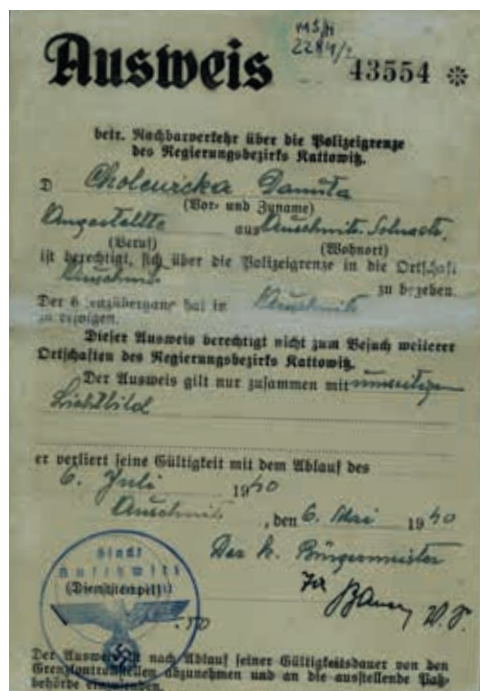 MS/H
2284/2
Ausweis 43554 ※
betr. Nachbarverkehr über die Polizeigrenze
des Regierungsbezirks Kattowitz.
D Cholewicka Danuta
(Vor- und Zuname)
Angestellte aus Auschwitz
(Beruf) (Wohnort)
ist berechtigt, sich über die Polizeigrenze in die Ortschaft
Auschwitz zu begeben.
Der Grenzübergang hat in Auschwitz
zu erfolgen.
Dieser Ausweis berechtigt nicht zum Besuch weiterer
Ortschaften des Regierungsbezirks Kattowitz.
Der Ausweis gilt nur zusammen mit umseitigen
Lichtbild
er verliert seine Gültigkeit mit dem Ablauf des
6. Juli 1940
Auschwitz, den 6. Mai 1940
Der k. Bürgermeister
Stadt
Auschwitz
(Dienststempel)
-.50
Der Ausweis ist nach Ablauf seiner Gültigkeitsdauer von den
Grenzkontrollstellen abzunehmen und an die ausstellende Paß-
behörde einzusenden.